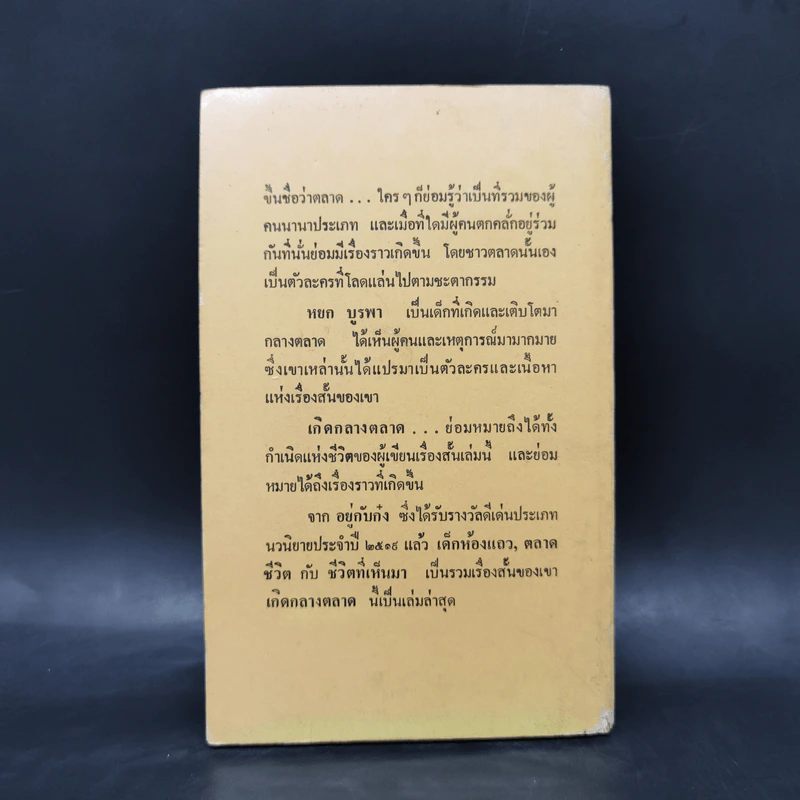 ขึ้นชื่อว่าตลาด ... ใคร ๆ ก็ย่อมรู้ว่าเป็นที่รวมของผู้
คนนานาประเภท และเมื่อที่ใดมีผู้คนตกคลั่กอยู่ร่วม
กันที่นั่นย่อมมีเรื่องราวเกิดขึ้น โดยชาวตลาดนั้นเอง
เป็นตัวละครที่โลดแล่นไปตามชะตากรรม
หยก บูรพา เป็นเด็กที่เกิดและเติบโตมา
กลางตลาด ได้เห็นผู้คนและเหตุการณ์มามากมาย
ซึ่งเขาเหล่านั้นได้แปรมาเป็นตัวละครและเนื้อหา
แห่งเรื่องสั้นของเขา
เกิดกลางตลาด ... ย่อมหมายถึงได้ทั้ง
กำเนิดแห่งชีวิตของผู้เขียนเรื่องสั้นเล่มนี้ และย่อม
หมายได้ถึงเรื่องราวที่เกิดขึ้น
จาก อยู่กับก๋ง ซึ่งได้รับรางวัลดีเด่นประเภท
นวนิยายประจำปี ๒๕๑๙ แล้ว เด็กห้องแถว, ตลาด
ชีวิต กับ ชีวิตที่เห็นมา เป็นรวมเรื่องสั้นของเขา
เกิดกลางตลาด นี้เป็นเล่มล่าสุด